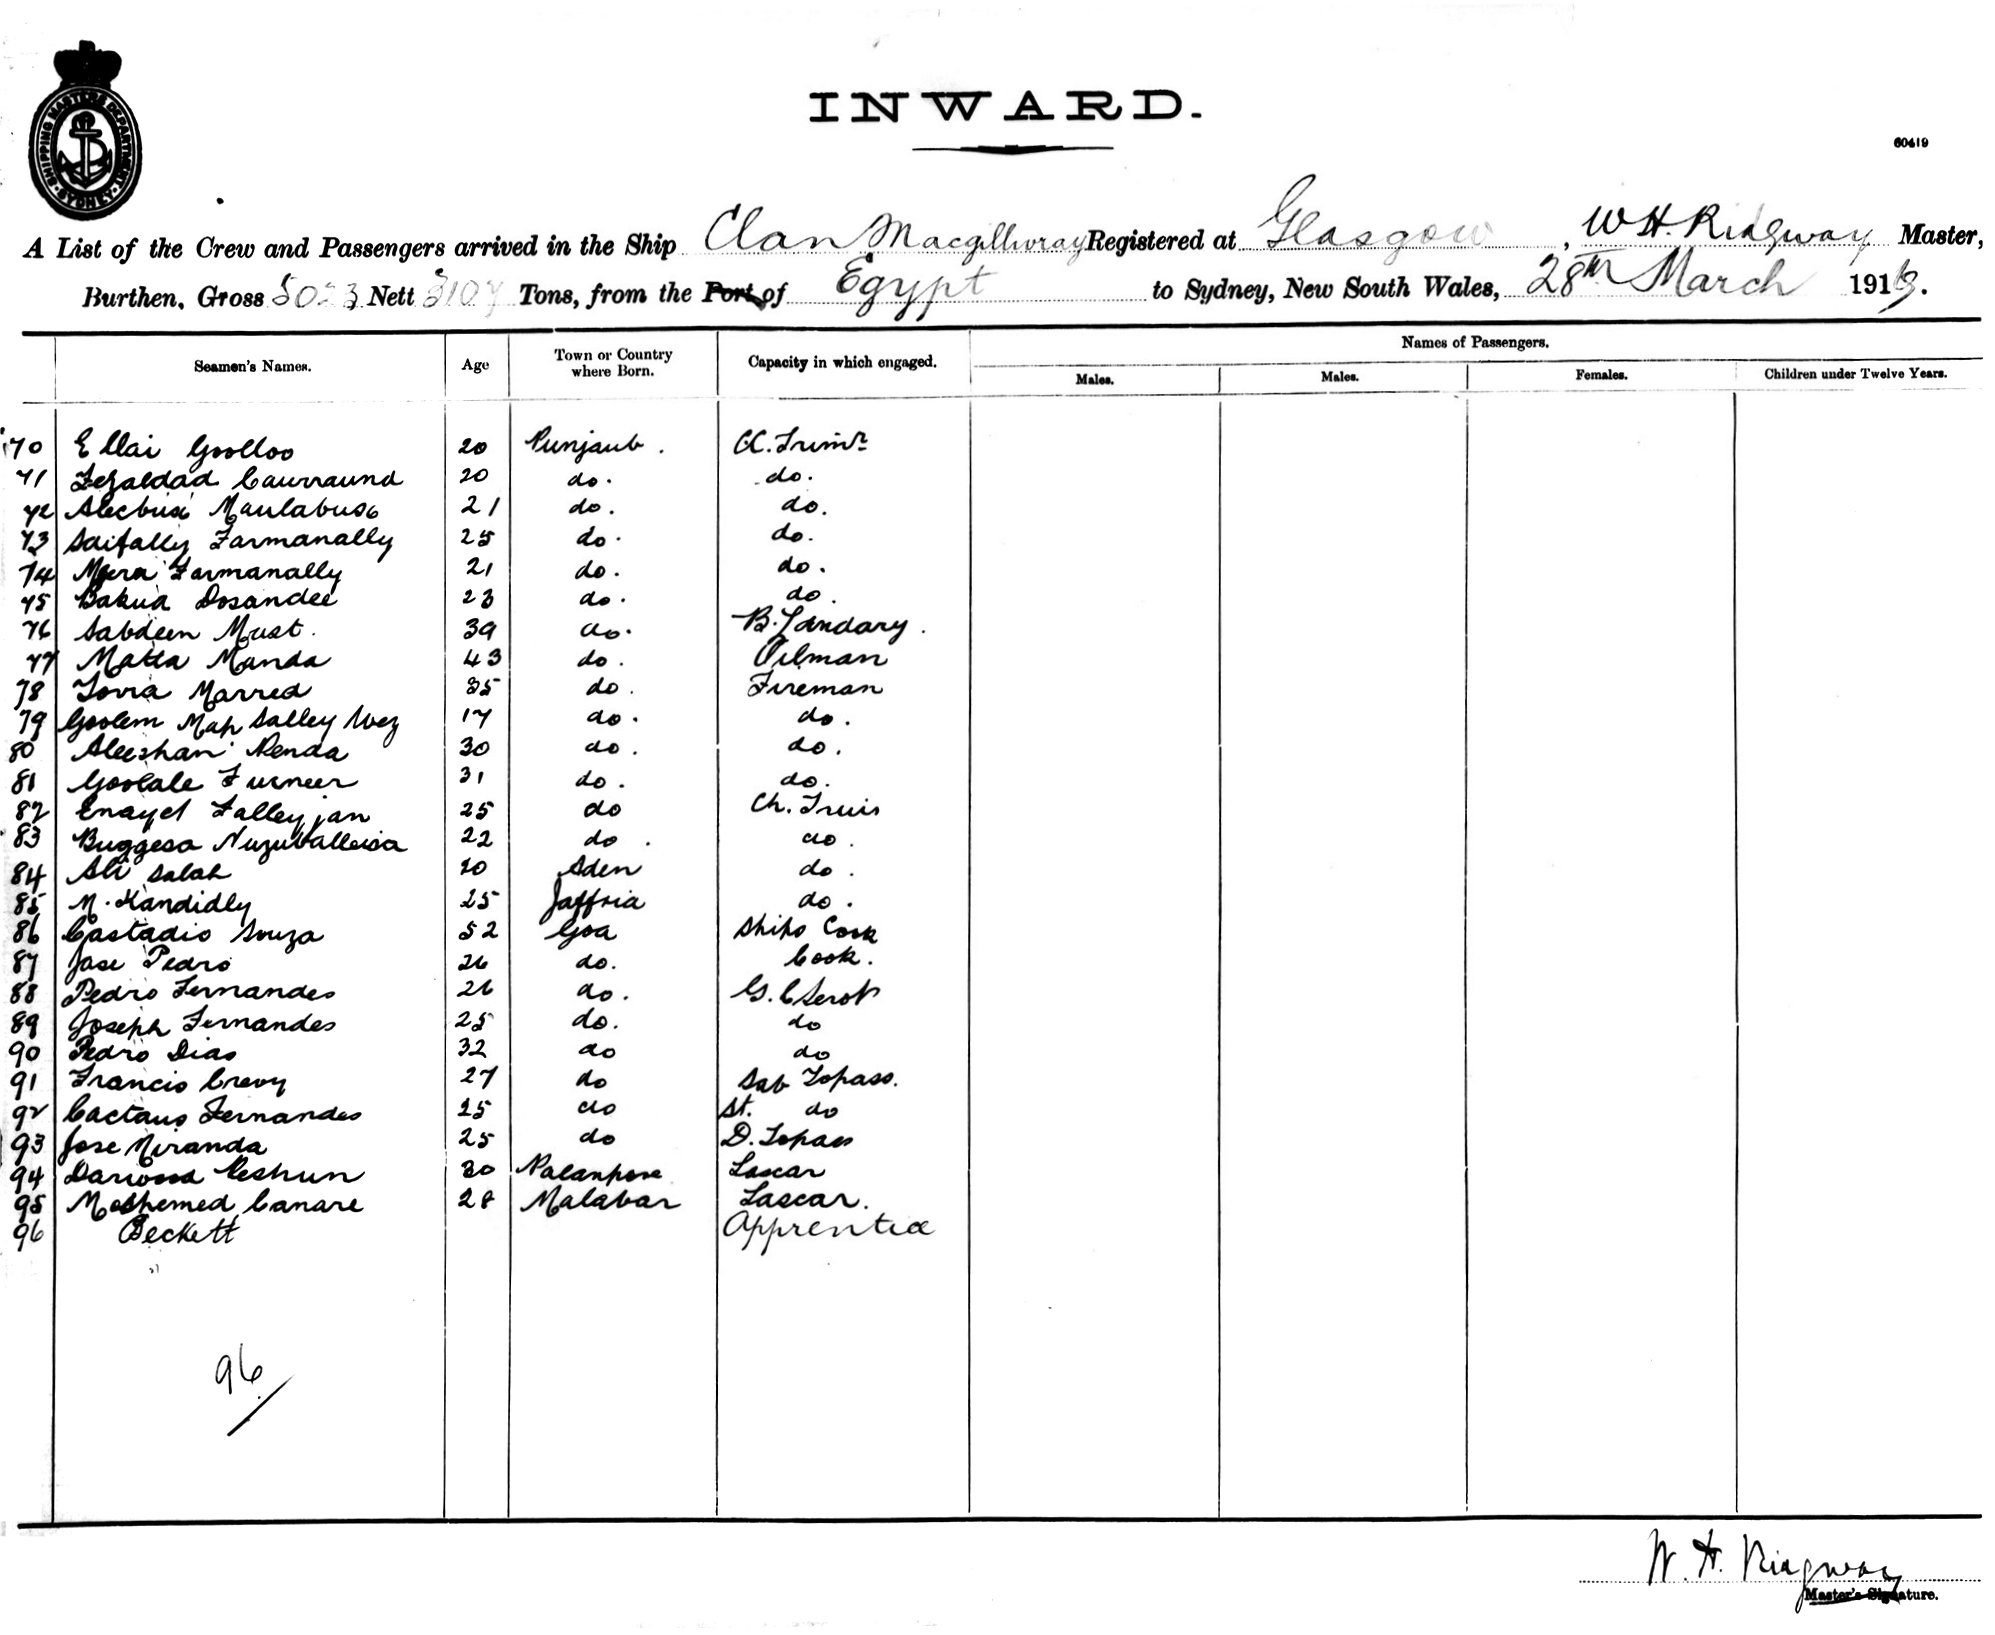 SHIPPING MASTERS DEPARTMENT. SYDNEY
INWARD.
60419
A List of the Crew and Passengers arrived in the Ship Clan Macgillivray Registered at Glasgow, W H. Ridgway Master,
Burthen, Gross 5023 Nett 3107 Tons, from the Port of Egypt to Sydney, New South Wales, 28th March 191
Names of Passengers.
Seamen's Names. Age Town or Country where Born. Capacity in which engaged. Males. Males. Females. Children under Twelve Years.
70 Ellai Goolloo 20 Punjaub. Trimr
71 Caurraund 20 do. do.
72 Maulabux 21 do. do.
73 Saifally Farmanally 25 do. do.
74 Farmanally 21 do. do.
75 Dosandee 23 do. do.
76 Sabdeen Must. 39 do. B. 
77 Matta Manda 43 do. Oilman
78 Marred 35 do. Fireman
79 Goolem Map Salley 17 do. do.
80 Aleeshan 30 do. do.
81 Goolale Furneer 31 do. do.
82 Enayet Falleyjan 25 do Ch.
83 Buggesa 22 do. do.
84 Ali Salah 20 Aden do.
85 M. Kandidly 25 Jaffria do.
86 Castadio Souza 52 Goa Ships Cook
87 Jose Pedro 26 do. Cook.
88 Pedro Fernandes 26 do. G.
89 Joseph Fernandes 25 do. do
90 Pedro Dias 32 do do
91 Francis 27 do Sab Topass.
92 Caetano Fernandes 25 do St. do
93 Jose Miranda 25 do D. Topass
94 30 Lascar
95 Canare 28 Malabar Lascar.
96 Beckett Apprentice
96/
W. H. Ridgway
Master's Signature.